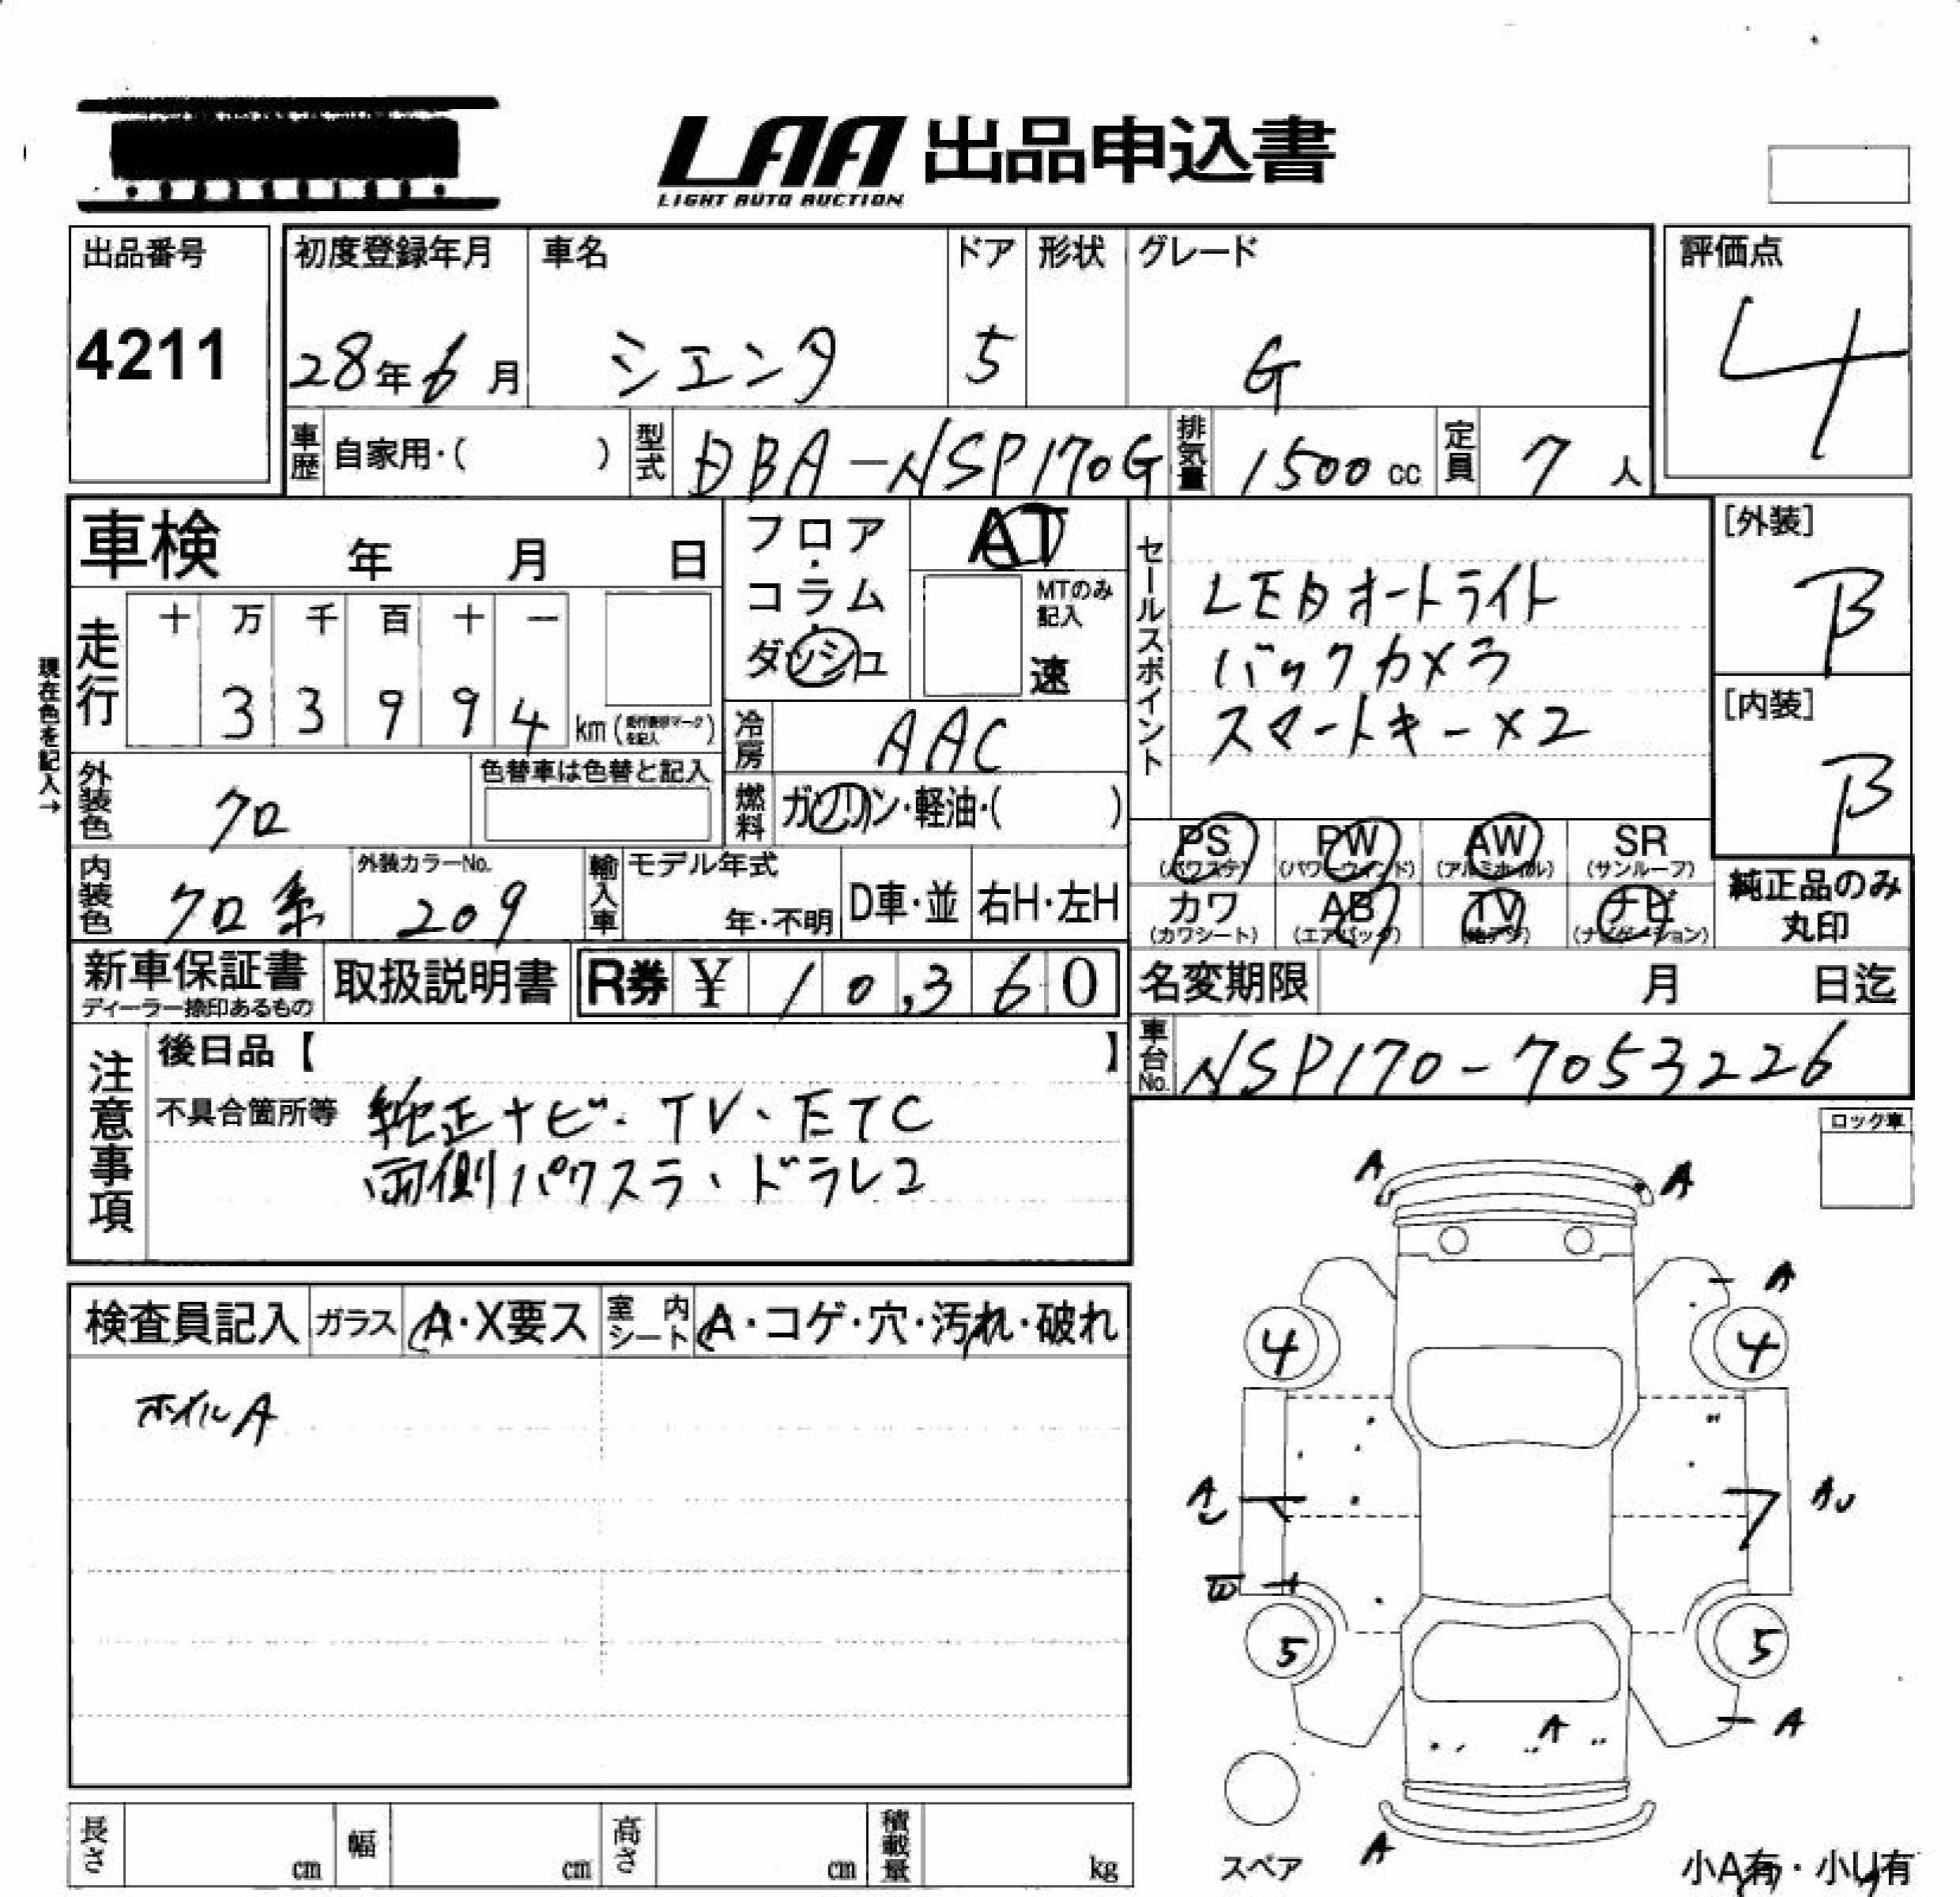 LAA 出品申込書
LIGHT AUTO AUCTION
出品番号
4211
初度登録年月 車名 ドア 形状 グレード 評価点
28年6月 シエンタ 5 G 4
車歴 自家用・( ) 型式 DBA-NSP170G 排気量 1500cc 定員 7人
車検 年 月 日
フロア・コラム・ダッシュ
AT
MTのみ記入
速
セールスポイント
LEDオートライト
バックカメラ
スマートキー×2
[外装]
B
[内装]
B
現在色を記入→
走行 十 万 千 百 十 一
3 3 9 9 4 km(走行換算マークを記入)
冷房 AAC
外装色 クロ 色替車は色替と記入
燃料 ガソリン・軽油・( )
内装色 クロ系 外装カラーNo. 209
輸入車 モデル年式 年・不明 D車・並 右H・左H
PS (パワステ) PW (パワーウィンド) AW (アルミホイル) SR (サンルーフ)
カワ (カワシート) AB (エアバッグ) TV (地デジ) ナビ (ナビゲーション)
純正品のみ丸印
新車保証書 ディーラー捺印あるもの 取扱説明書 R券 ¥ 10,360
名変期限 月 日迄
車台No. NSP170-7053226
注意事項
後日品【 】
不具合箇所等 純正ナビ・TV、ETC
両側パワスラ、ドラレコ
ロック車
検査員記入 ガラス A・X要ス 室内シート A・コゲ・穴・汚れ・破れ
ホイルA
A A
A
4 4
AU AU
B
5 5
A A
A
スペア
小A有・小U有
長さ cm 幅 cm 高さ cm 積載量 kg